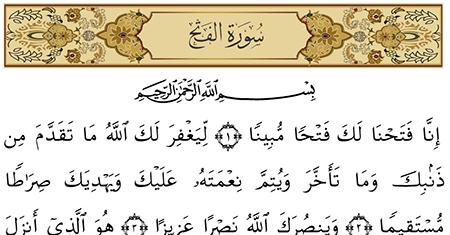 سُورَةُ الفَتْحِ
بِسْمِ ٱللَّهِ ٱلرَّحْمَٰنِ ٱلرَّحِيمِ
إِنَّا فَتَحْنَا لَكَ فَتْحًا مُّبِينًا ﴿١﴾ لِّيَغْفِرَ لَكَ ٱللَّهُ مَا تَقَدَّمَ مِن
ذَنۢبِكَ وَمَا تَأَخَّرَ وَيُتِمَّ نِعْمَتَهُۥ عَلَيْكَ وَيَهْدِيَكَ صِرَٰطًا
مُّسْتَقِيمًا ﴿٢﴾ وَيَنصُرَكَ ٱللَّهُ نَصْرًا عَزِيزًا ﴿٣﴾ هُوَ ٱلَّذِىٓ أَنزَلَ